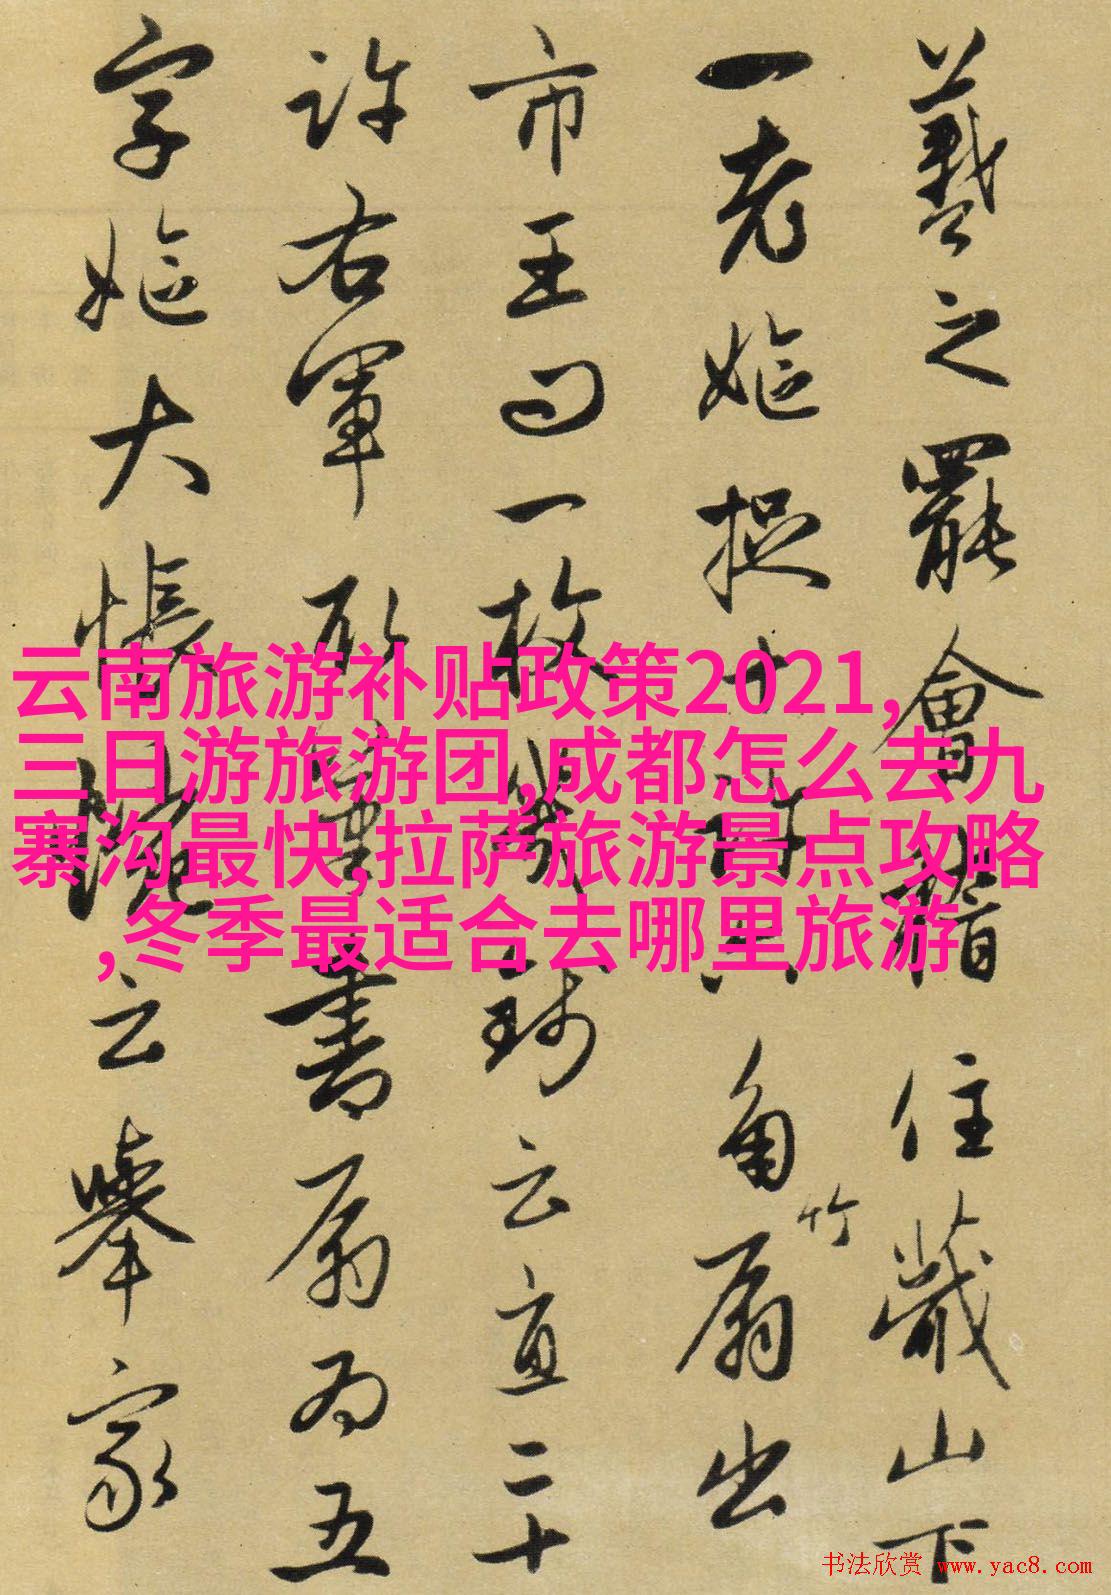 羲之罷會稽住蕺山下
一老嫗捉十許六角竹扇出
市王問一枚幾錢云直二十
許右軍取筆書扇為五
字嫗大悵惋云舉家
云南旅游补贴政策2021,
三日游旅游团,成都怎么去九
寨沟最快,拉萨旅游景点攻略
,冬季最适合去哪里旅游
书法欣赏 www.yac8.com